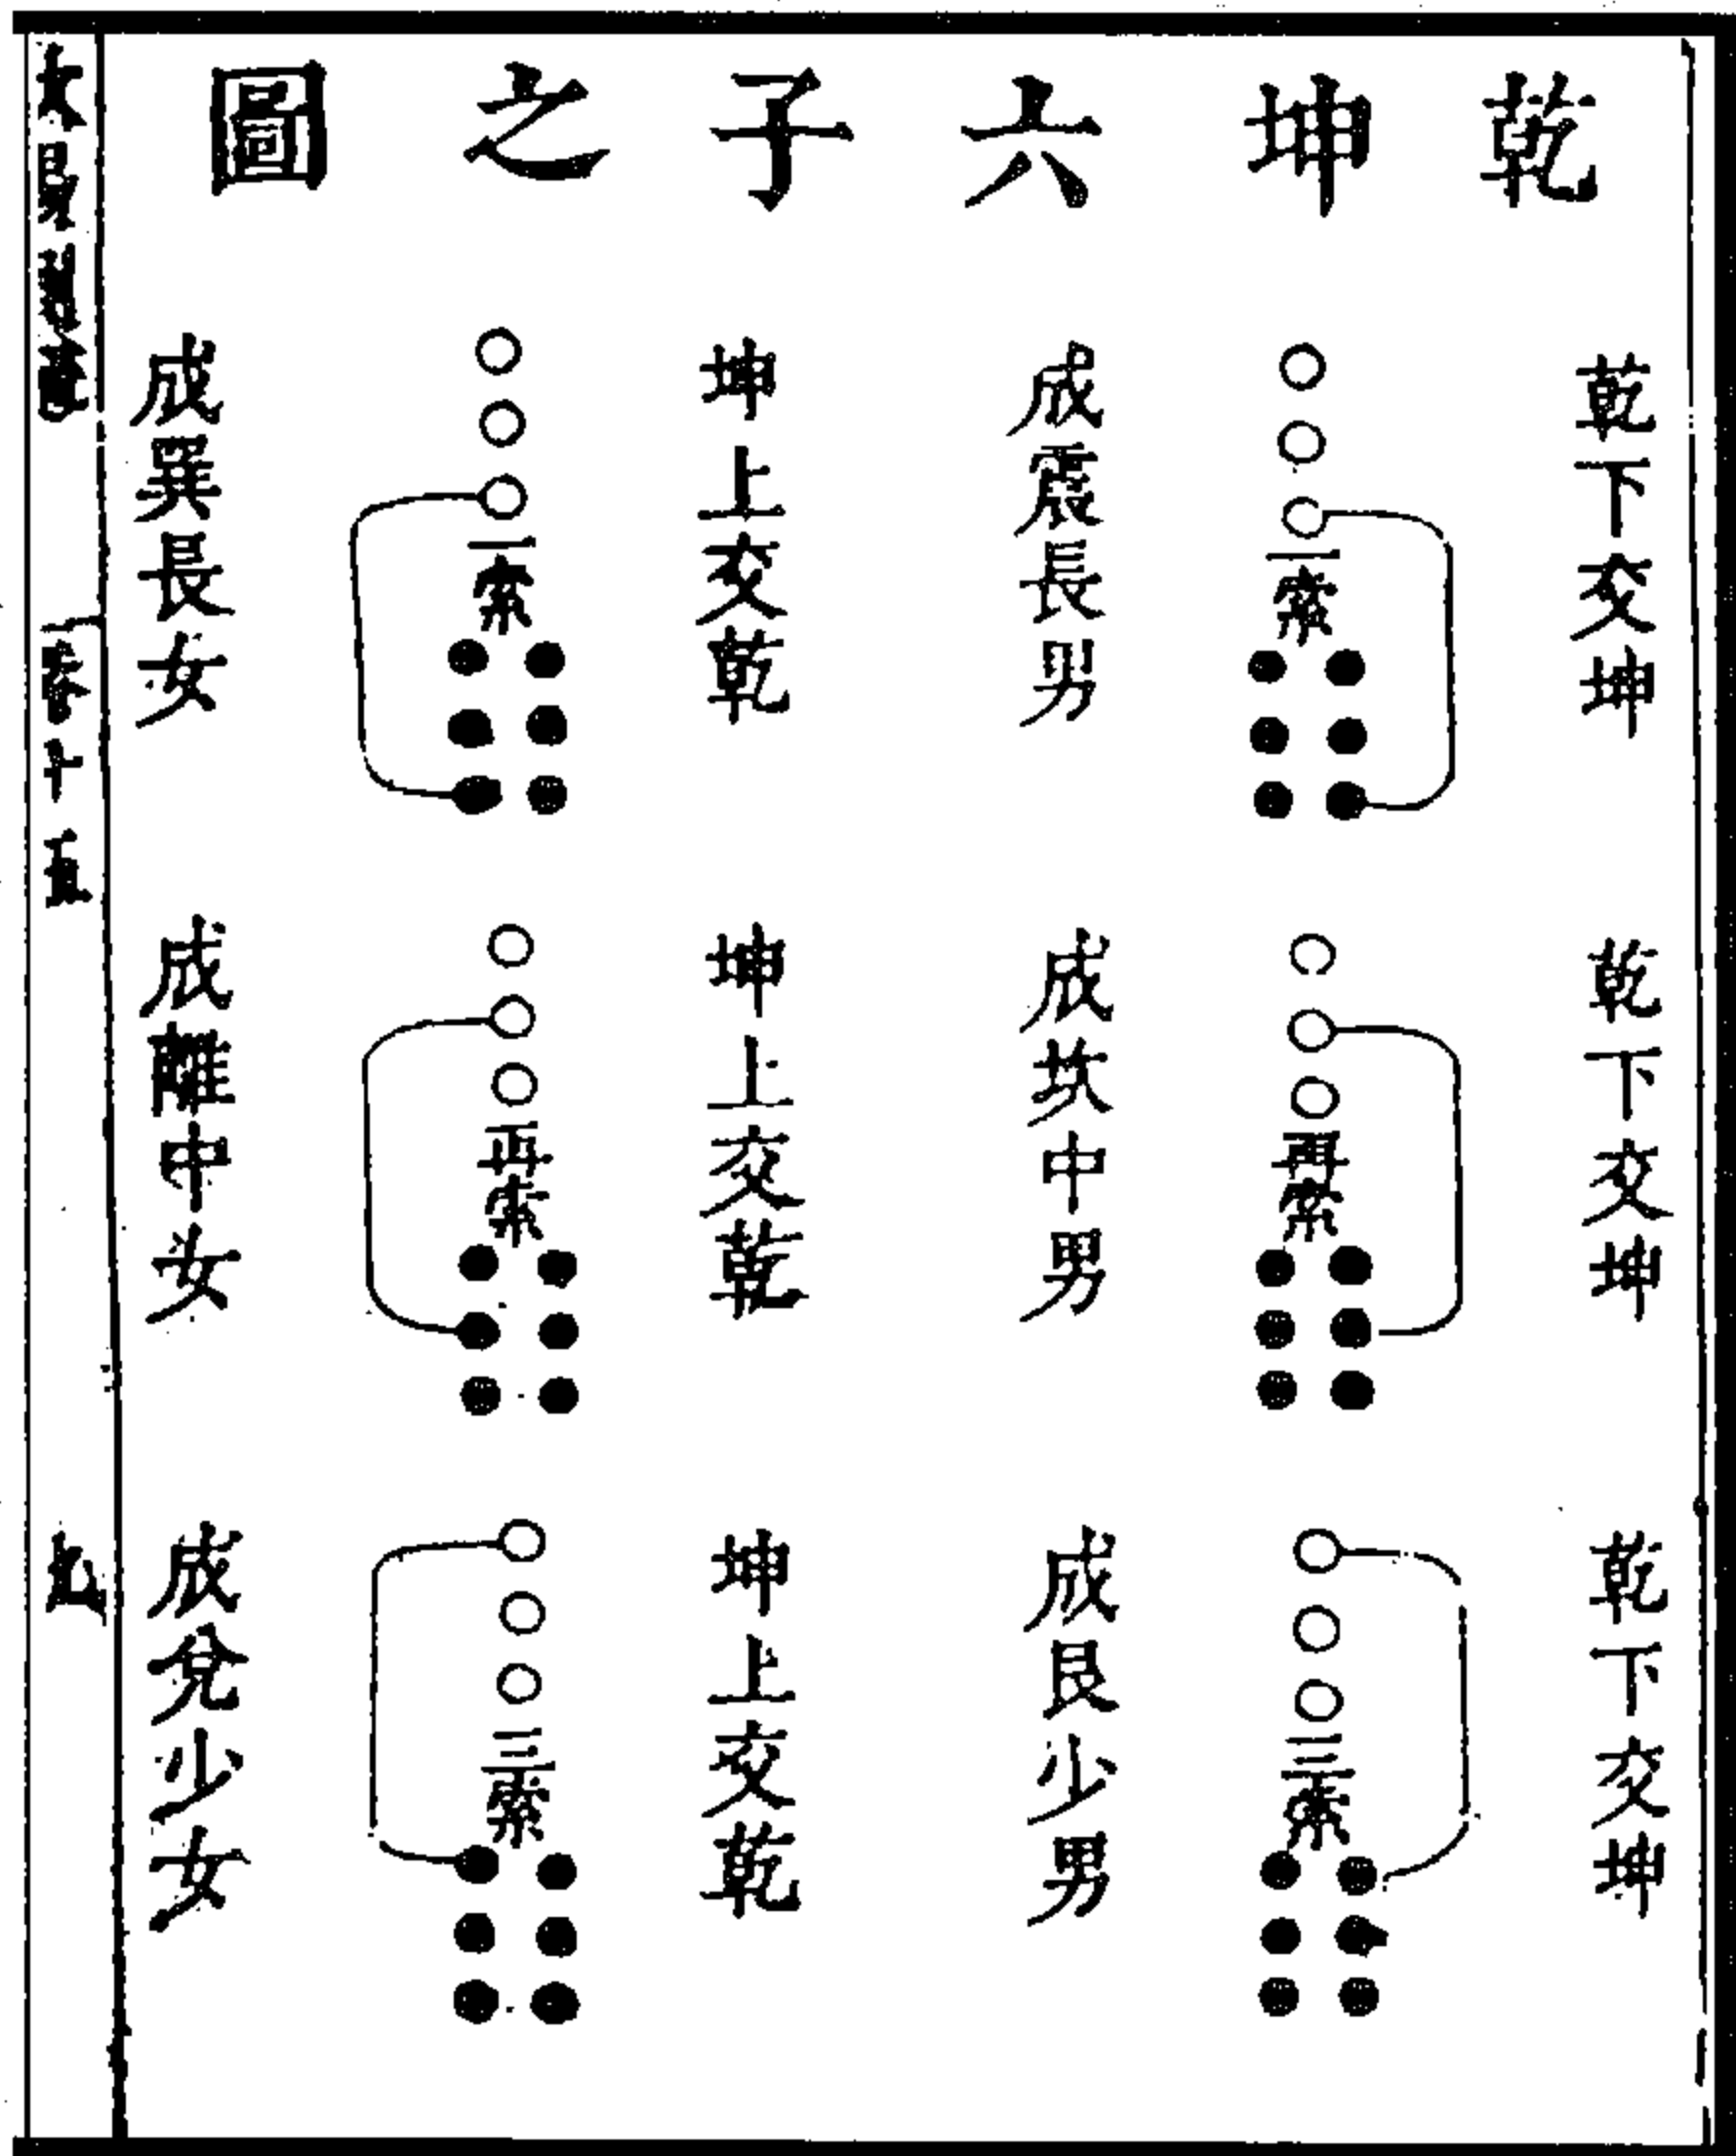 乾坤六子之圖
乾下交坤
一索
成震長男
坤上交乾
一索
成巽長女
乾下交坤
再索
成坎中男
坤上交乾
再索
成離中女
乾下交坤
三索
成艮少男
坤上交乾
三索
成兌少女